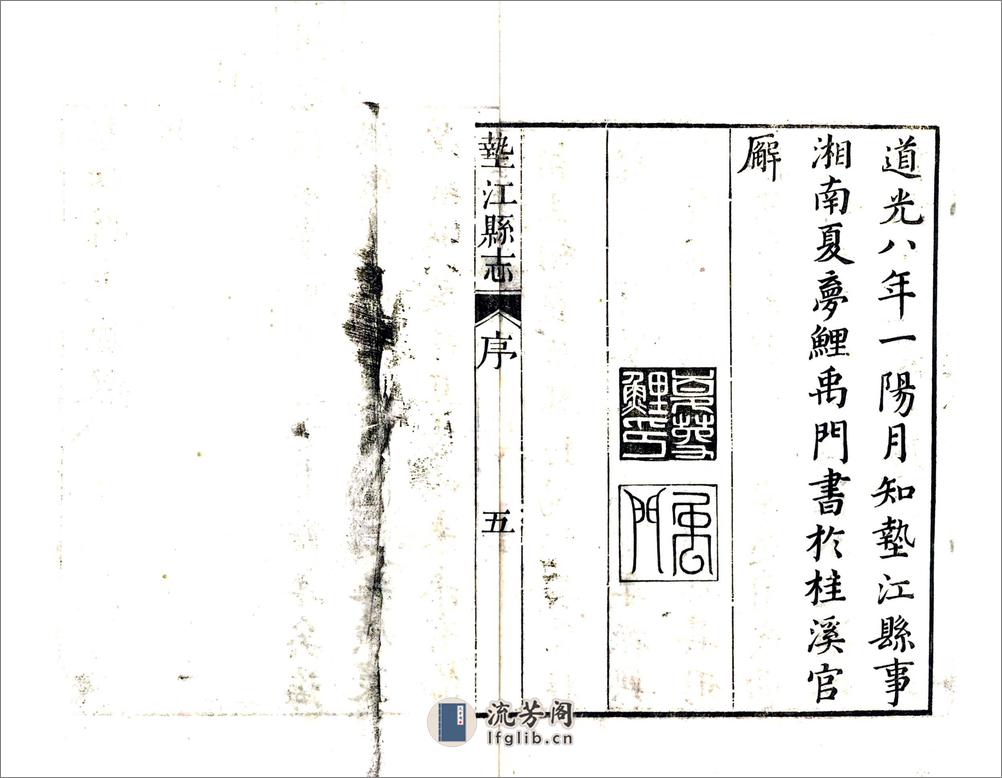 道光八年一陽月知墊江縣事
湘南夏夢鯉禹門書於桂溪官
廨
夏夢鯉印
禹門
墊江縣志
序
五
流芳阁
lfglib.cn